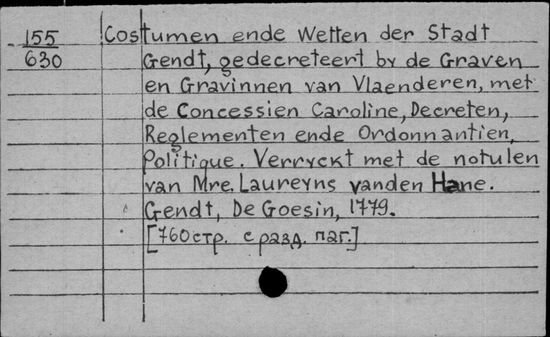 155
630
Costumen ende Wetten der Stadt
Gendt, gedecreteert by de Graven
en Gravinnen van Vlaenderen, met
de Concessien Caroline, Decreten,
Reglementen ende Ordonnantien,
Politique. Verryckt met de notulen
van Mre. Laureyns vanden Hane.
Gendt, De Goesin, 1779.
[760 стр. с разд. паг.]